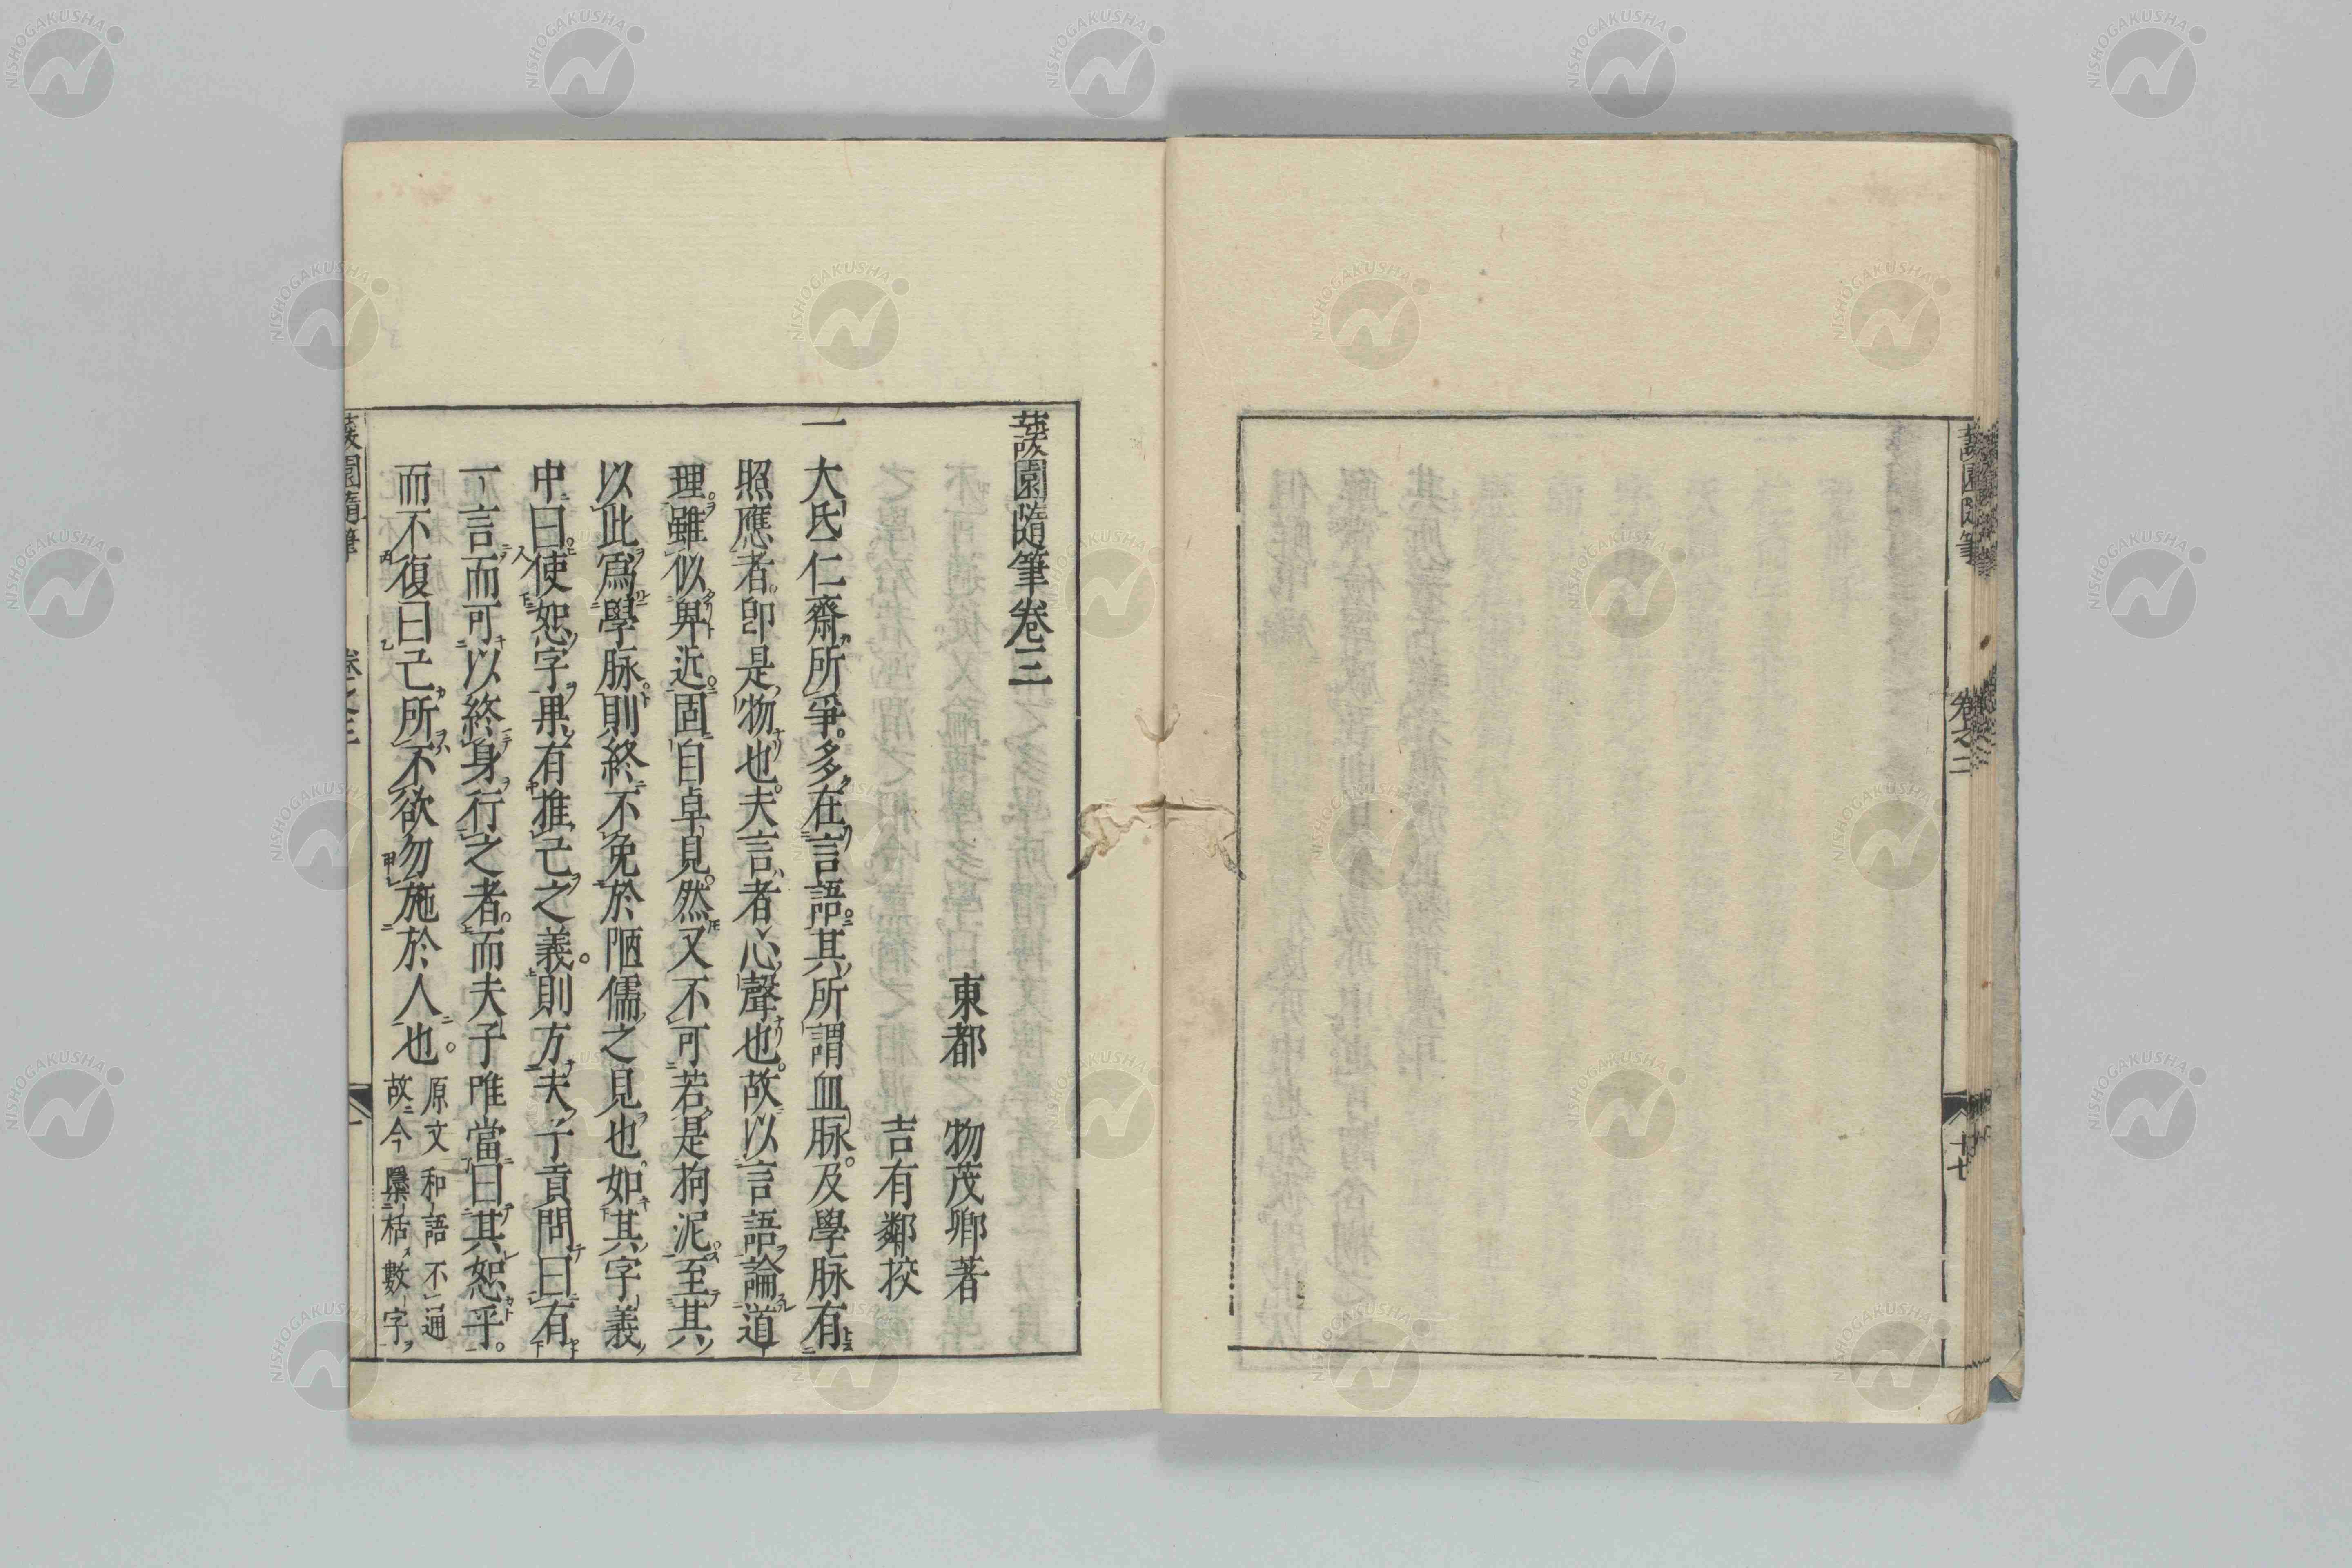 蘐園隨筆
卷之二
十七
蘐園隨筆卷三
東都 物茂卿著
吉有鄰挍
一大氐仁齋所爭。多在言語。其所謂血脉。及學脉有
照應者。卽是物也。夫言者心聲也。故以言語論道
理。雖似卑近。固自卓見。然又不可若是拘泥。至其
以此爲學脉。則終不免於陋儒之見也。如其字義
中曰。使恕字果有推己之義。則方夫子貢問曰有
一言而可以終身行之者。而夫子唯當曰其恕乎。
而不復曰己所不欲勿施於人也。原文和語不通
故今櫽栝數字
蘐園隨筆
卷之三
一
NISHOGAKUSHA